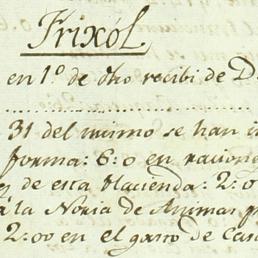 Frixól
en 1º de dho recibi de D
31 del mismo se han
forma: 6:0 en racione
de esta Hacienda: 2:0
á la Noria de Animas p
2:00 en el gasto de Casa